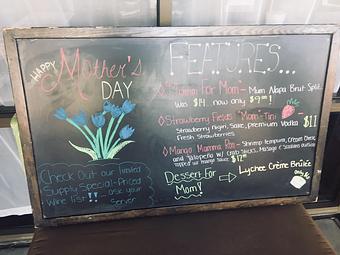 Happy
Mother's
DAY
Check Out our limited
Supply Special-Priced
Wine list!! - ask your
Server
FEATURES...
Mumm For Mom - Mum Napa Brut Split
Was $14, now only $9
Strawberry Fields "Mom-Tini" $11
Strawberry Agari, Sake, premium Vodka
Fresh Strawberries
Mango Mamma Roll - Shrimp Tempura, Cream Cheese,
and Jalapeño w/ Crab Sticks, Masago & Scallions outside
topped w/ Mango Sauce $12
Dessert For
Mom!
Lychee Crème Brûlée
only